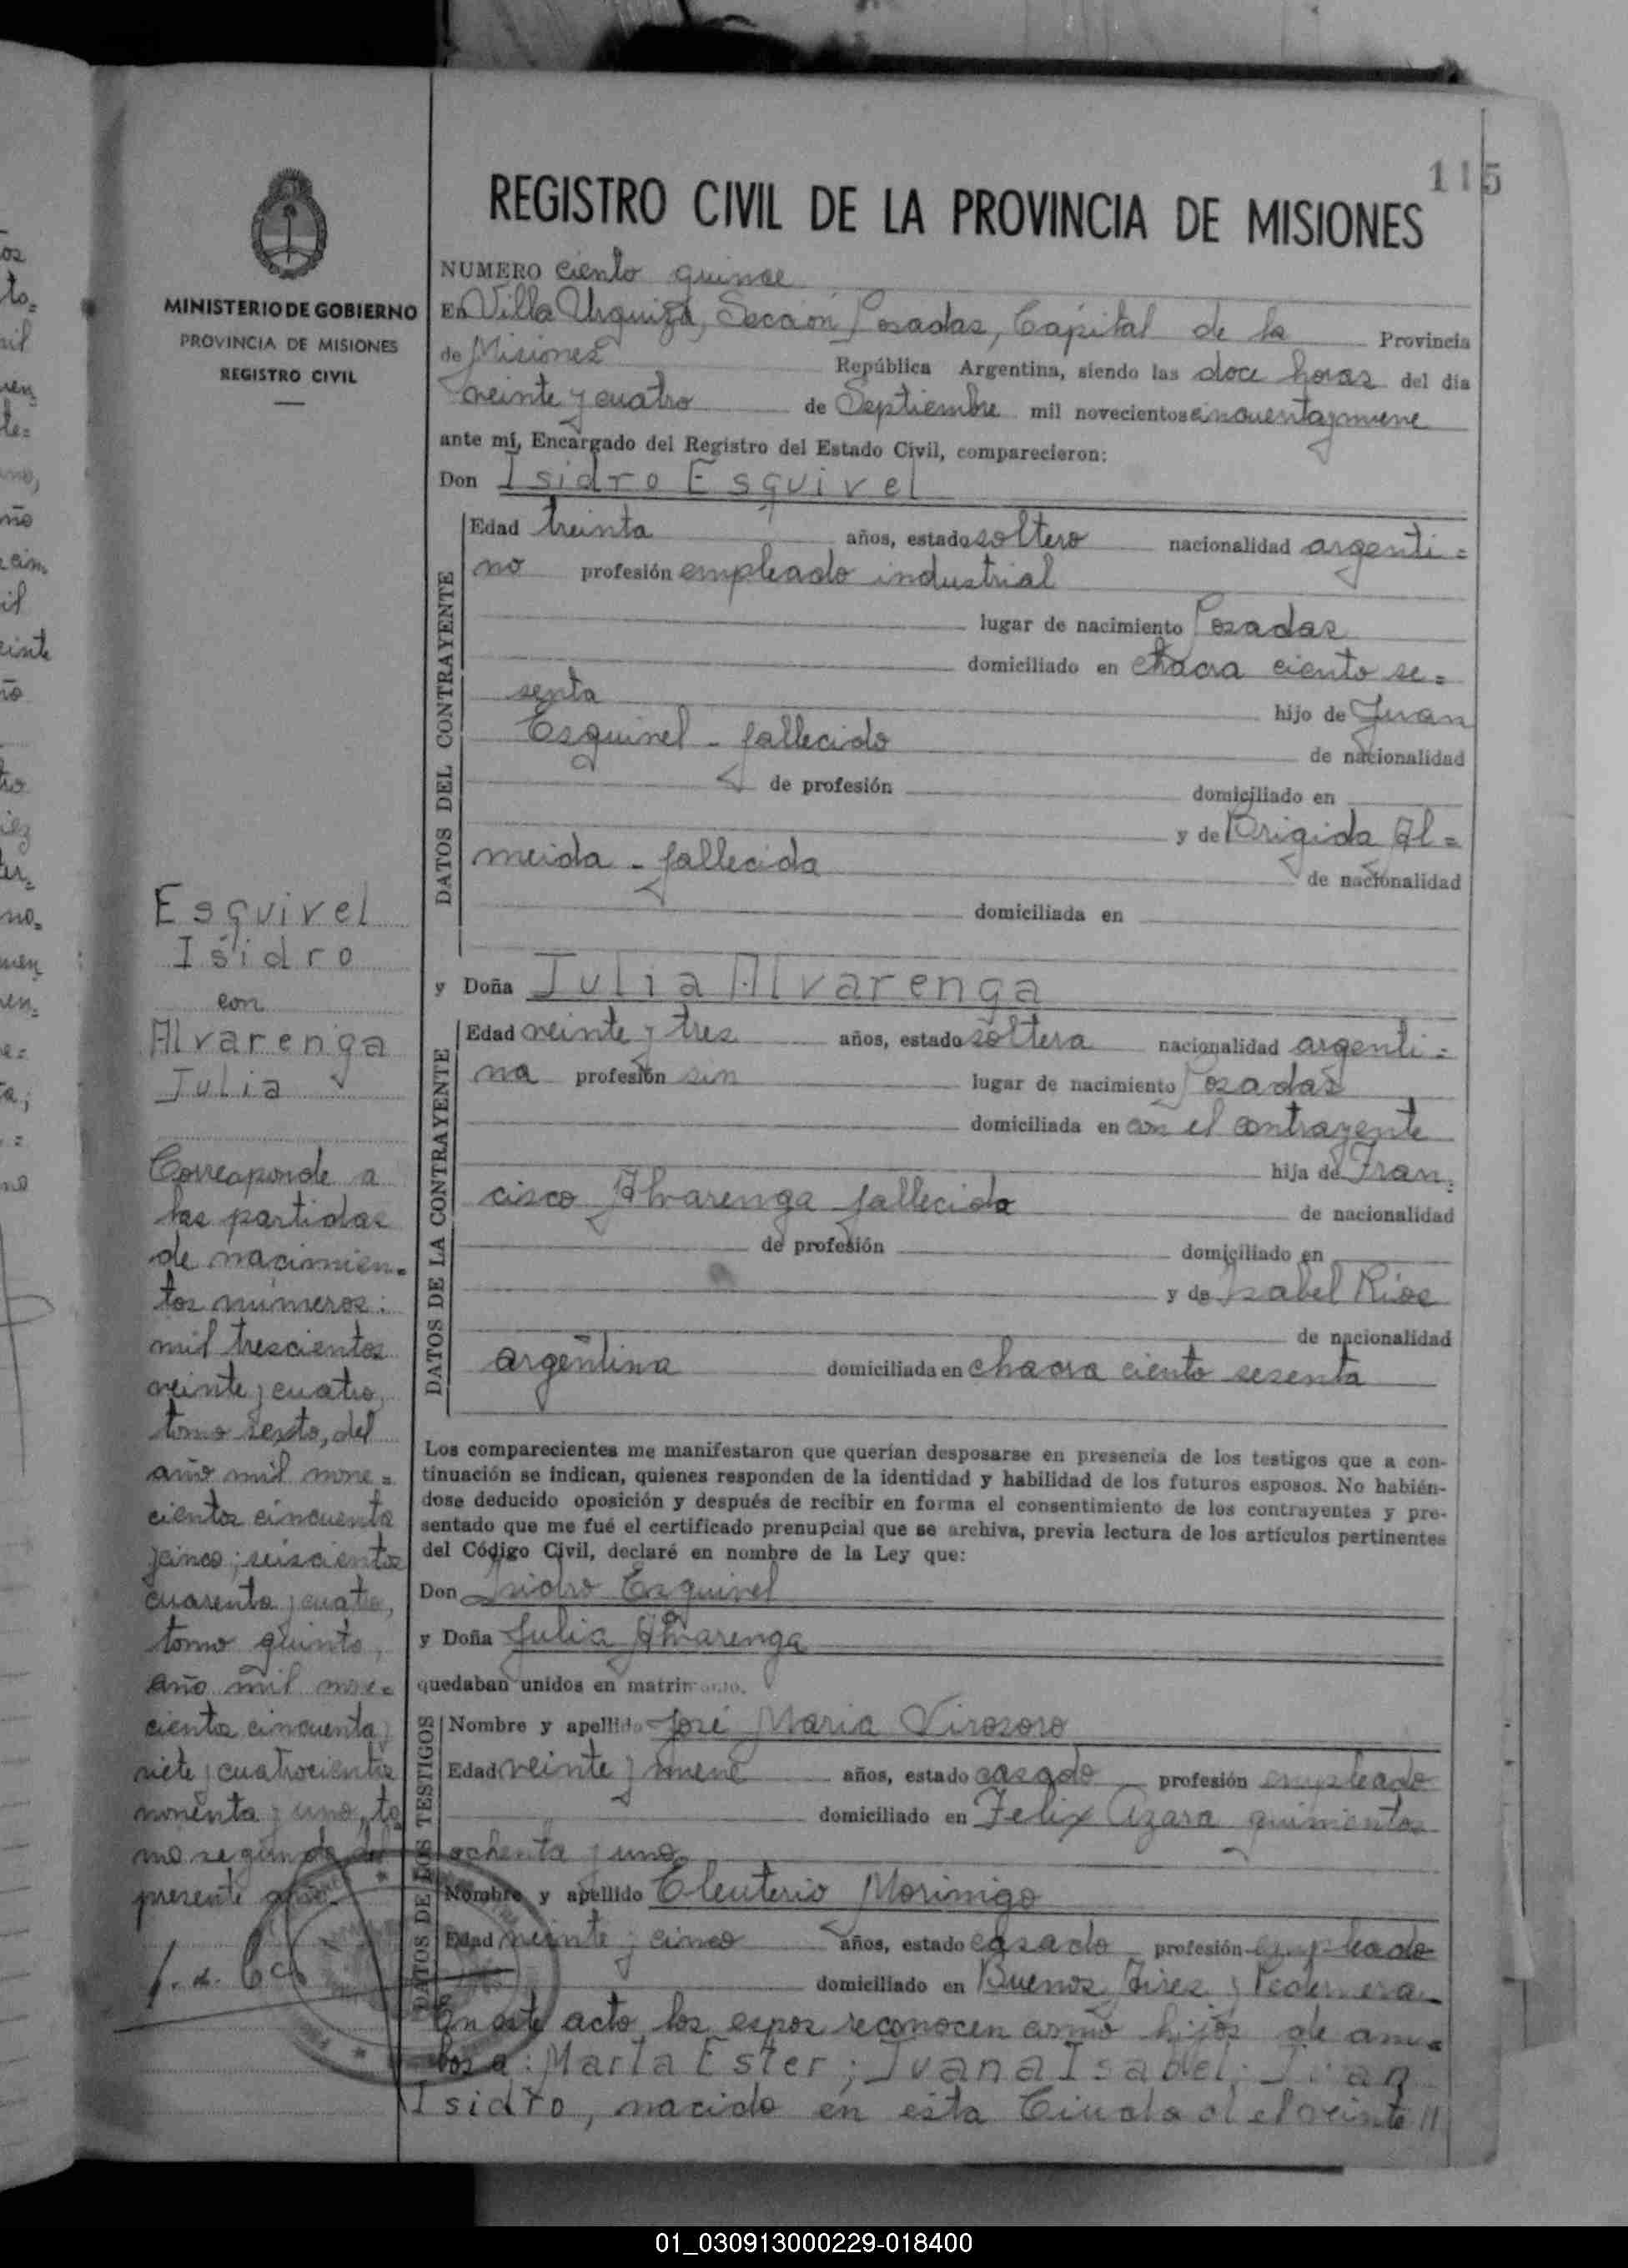 115
REGISTRO CIVIL DE LA PROVINCIA DE MISIONES
MINISTERIO DE GOBIERNO
PROVINCIA DE MISIONES
REGISTRO CIVIL
NUMERO ciento quince
En Villa Urquiza, Sección Posadas, Capital de la Provincia
de Misiones República Argentina, siendo las doce horas del día
veinte y cuatro de Septiembre mil novecientos cincuenta y nueve
ante mí, Encargado del Registro del Estado Civil, comparecieron:
Don Isidro Esquivel
DATOS DEL CONTRAYENTE
Edad treinta años, estado soltero nacionalidad argenti=
no profesión empleado industrial
lugar de nacimiento Posadas
domiciliado en chacra ciento se=
senta hijo de Juan
Esquivel - fallecido de nacionalidad
de profesión domiciliado en
y de Brigida Al=
meida - fallecida de nacionalidad
domiciliada en
y Doña Julia Alvarenga
DATOS DE LA CONTRAYENTE
Edad veinte y tres años, estado soltera nacionalidad argenti=
na profesión sin lugar de nacimiento Posadas
domiciliada en con el contrayente
hija de Fran=
cisco Alvarenga fallecido de nacionalidad
de profesión domiciliado en
y de Isabel Rios
de nacionalidad
argentina domiciliada en chacra ciento sesenta
Los comparecientes me manifestaron que querían desposarse en presencia de los testigos que a con-
tinuación se indican, quienes responden de la identidad y habilidad de los futuros esposos. No habién-
dose deducido oposición y después de recibir en forma el consentimiento de los contrayentes y pre-
sentado que me fué el certificado prenupcial que se archiva, previa lectura de los artículos pertinentes
del Código Civil, declaré en nombre de la Ley que:
Don Isidro Esquivel
y Doña Julia Alvarenga
quedaban unidos en matrimonio.
DATOS DE LOS TESTIGOS
Nombre y apellido José Maria Virosoro
Edad veinte y nueve años, estado casado profesión empleado
domiciliado en Felix Azara quinientos
ochenta y uno
Nombre y apellido Eleuterio Morinigo
Edad veinte y cinco años, estado casado profesión empleado
domiciliado en Buenos Aires y Pedernera
En este acto los espos reconocen como hijos de am=
bos a: Marta Ester; Juana Isabel; Juan
Isidro, nacido en esta Ciudad el veinte //
Esquivel
Isidro
con
Alvarenga
Julia
Corresponde a
las partidas
de nacimien=
tos números:
mil trescientos
veinte y cuatro,
tomo sexto, del
año mil nove=
cientos cincuenta
y cinco; seiscientos
cuarenta y cuatro,
tomo quinto,
año mil nove=
cientos cincuenta y
siete y cuatrocientos
noventa y uno, to
mo segundo del
presente año.
01_030913000229-018400